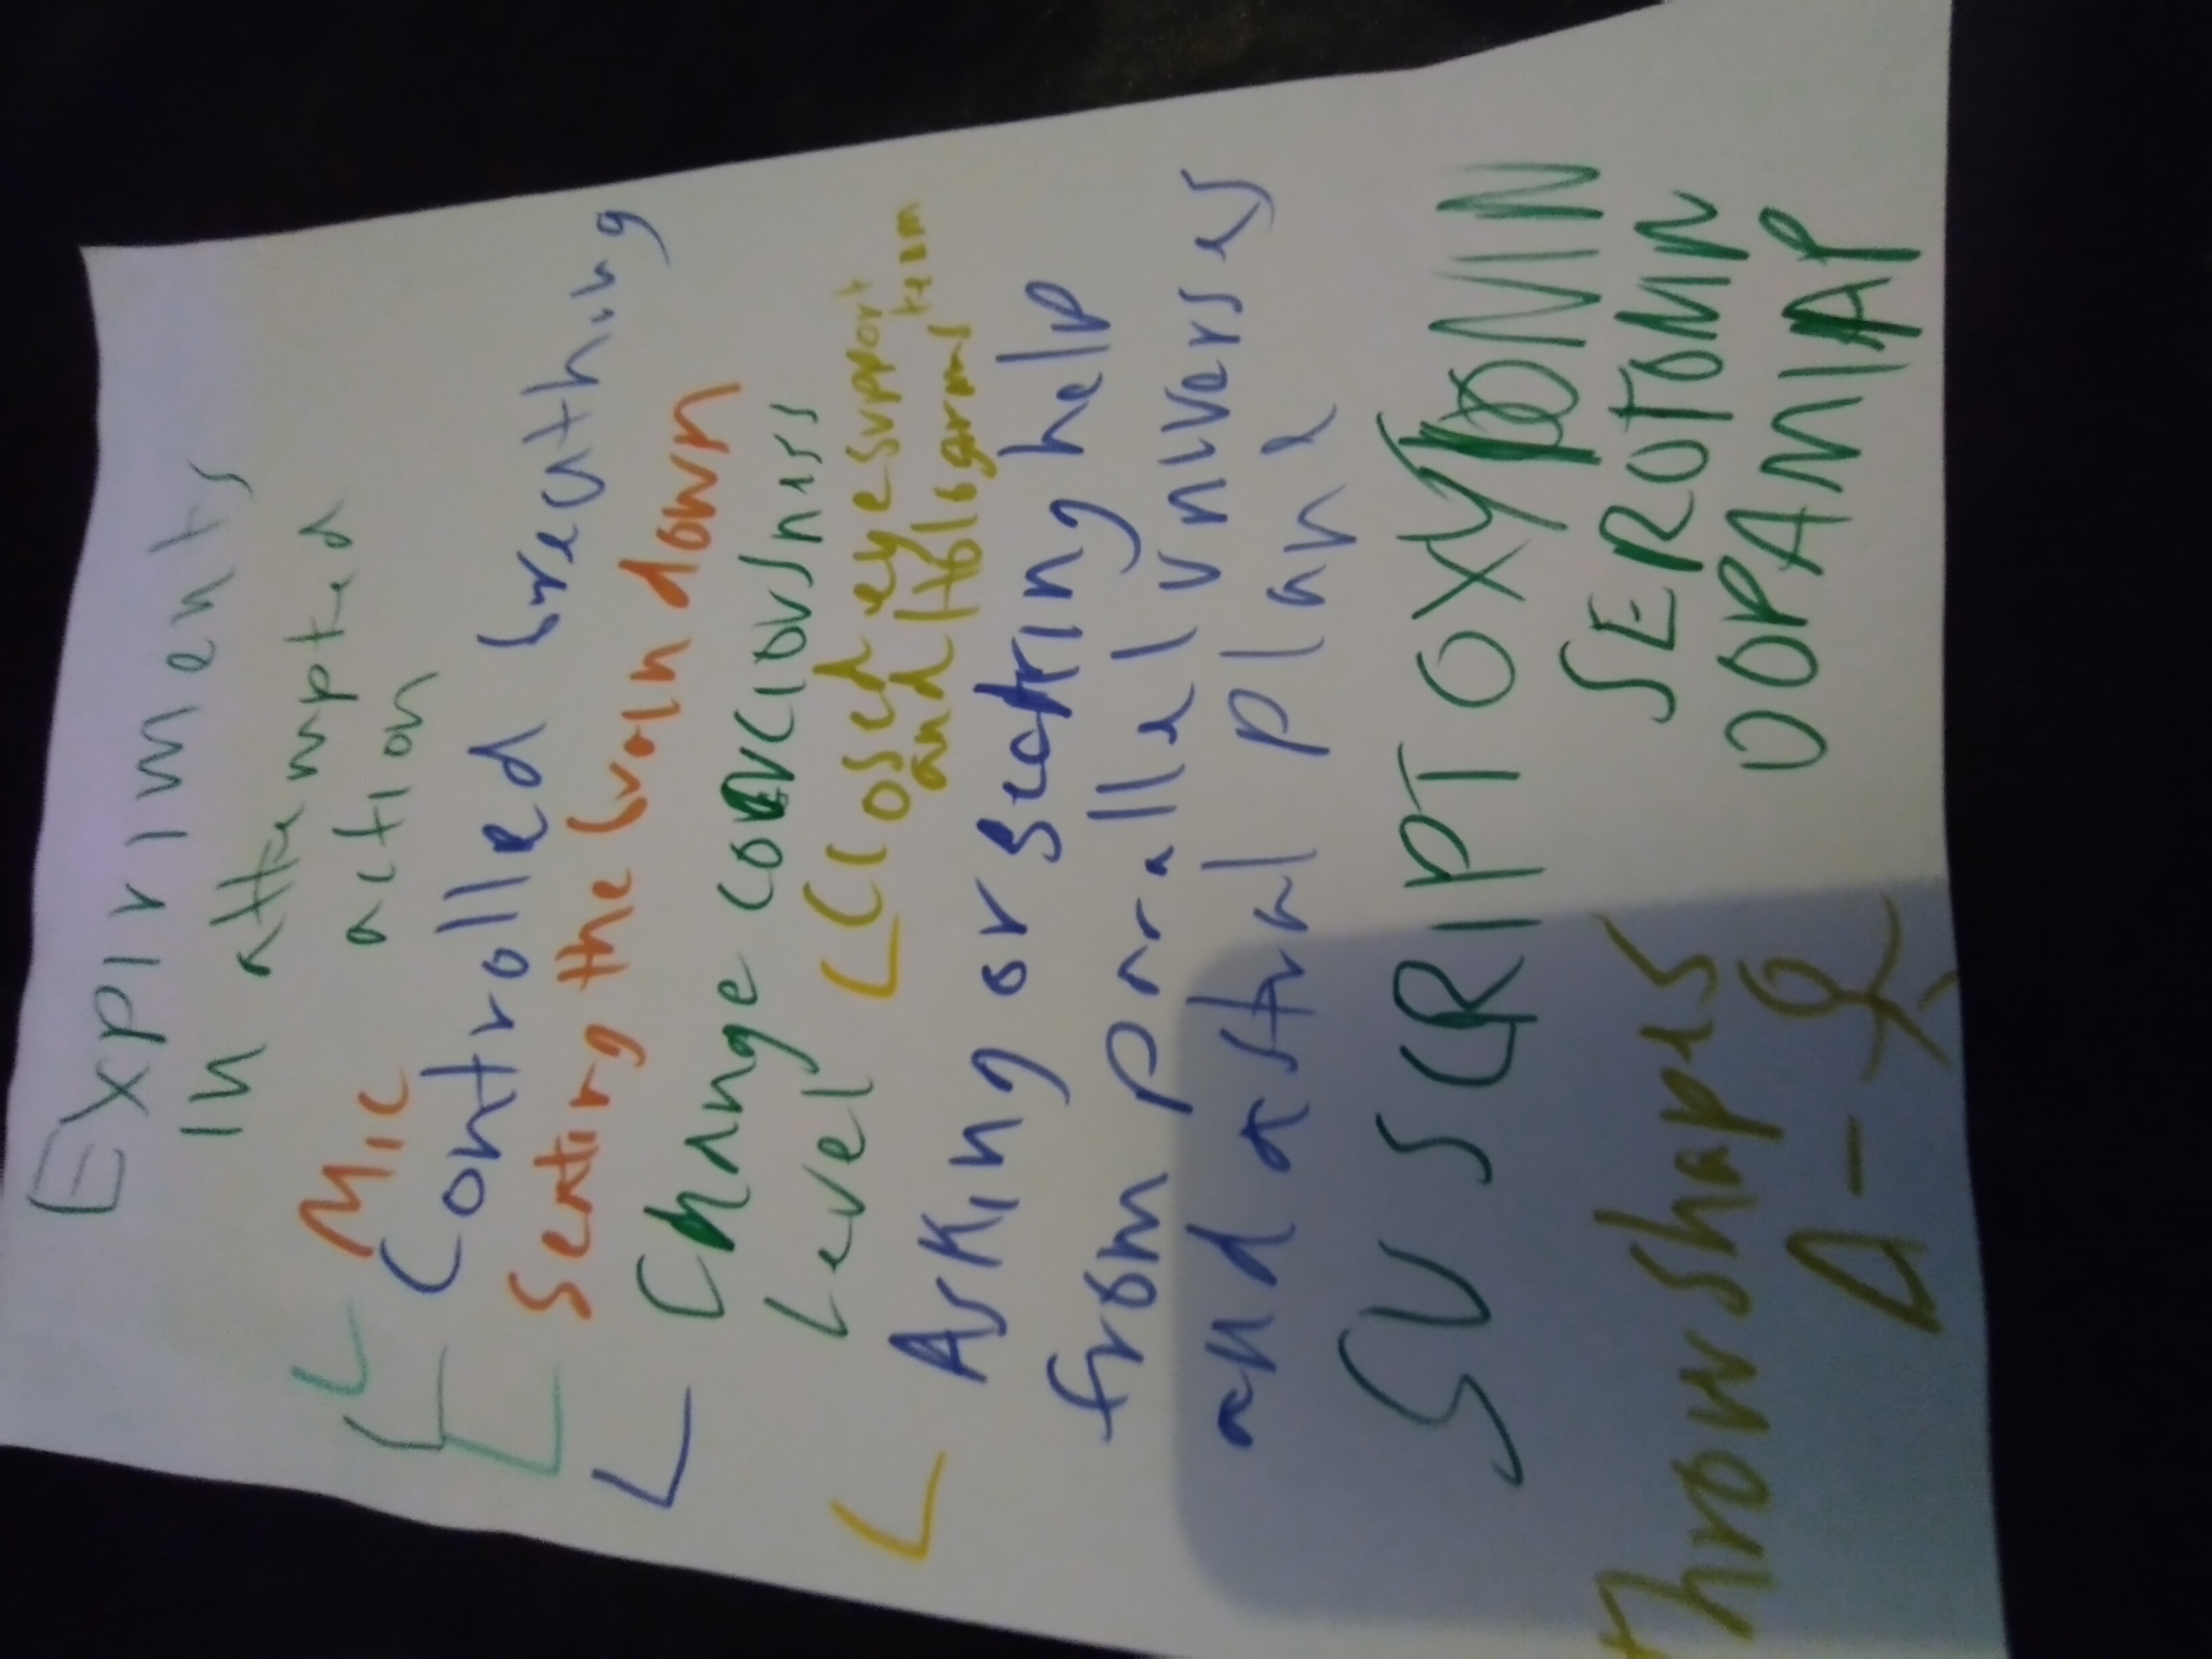 Expiriments
In attempted
action
Mic
Controlled breathing
Setting the brain down
Change conciousness
Level
Closed eye support
and Hologram
Asking or seaking help
from parallel univerxs
and astral plain
SU SCRIPT OXY
SEROTONIN
DOPAMIAP
Throw shapes